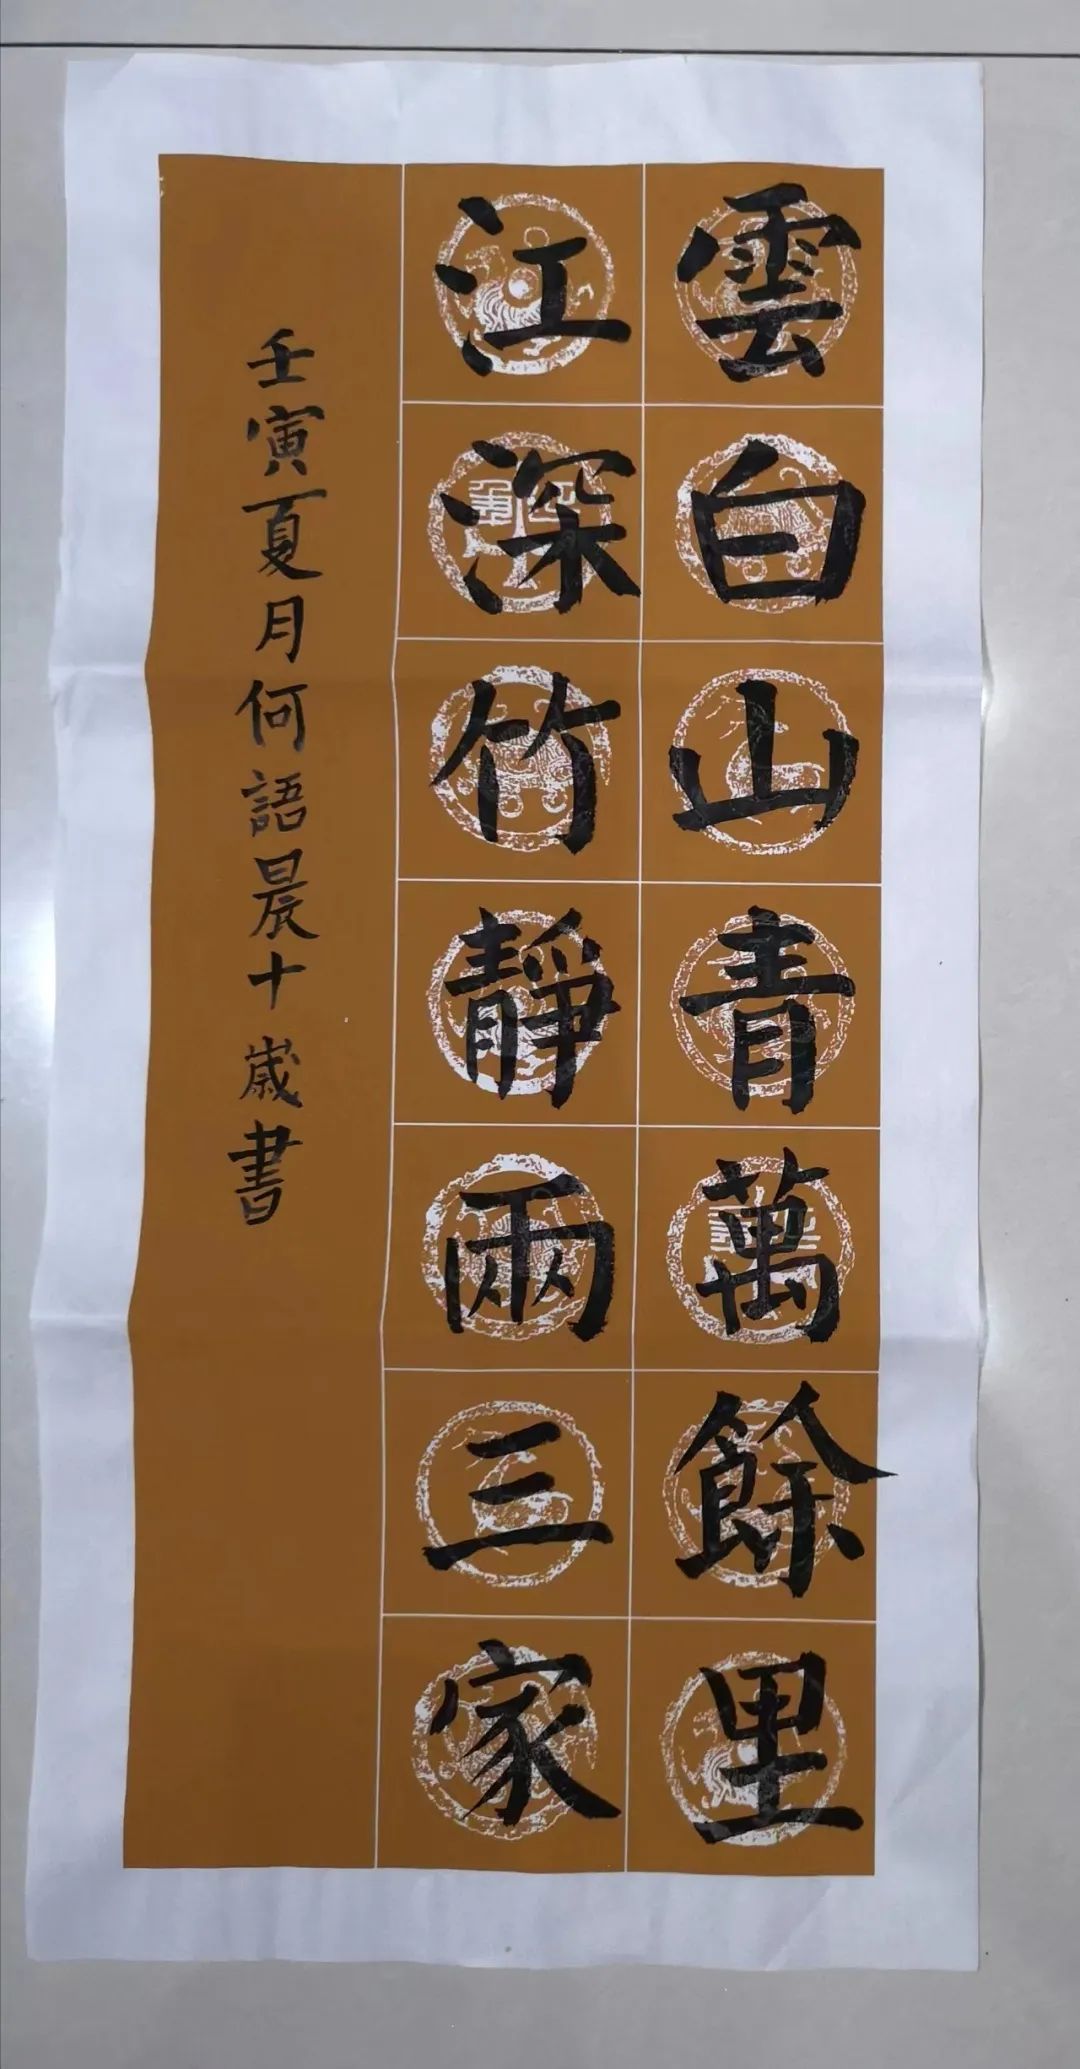 雲白山青萬餘里
江深竹靜兩三家
壬寅夏月何語晨十歲書